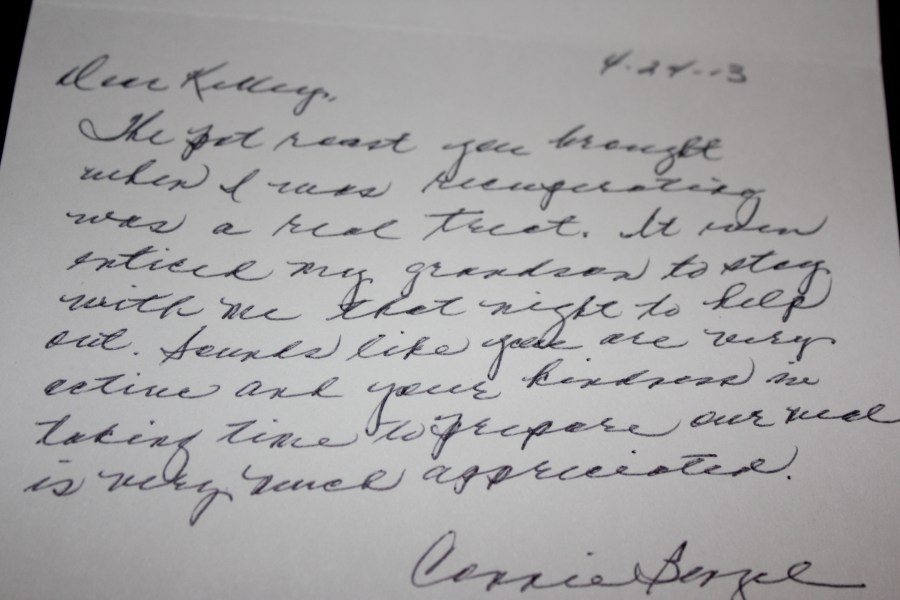 4-24-13
Dear Kelley,
The pot roast you brought
when I was recuperating
was a real treat. It even
enticed my grandson to stay
with me that night to help
out. Sounds like you are very
active and your kindness in
taking time to prepare our meal
is very much appreciated.
Connie Benzel